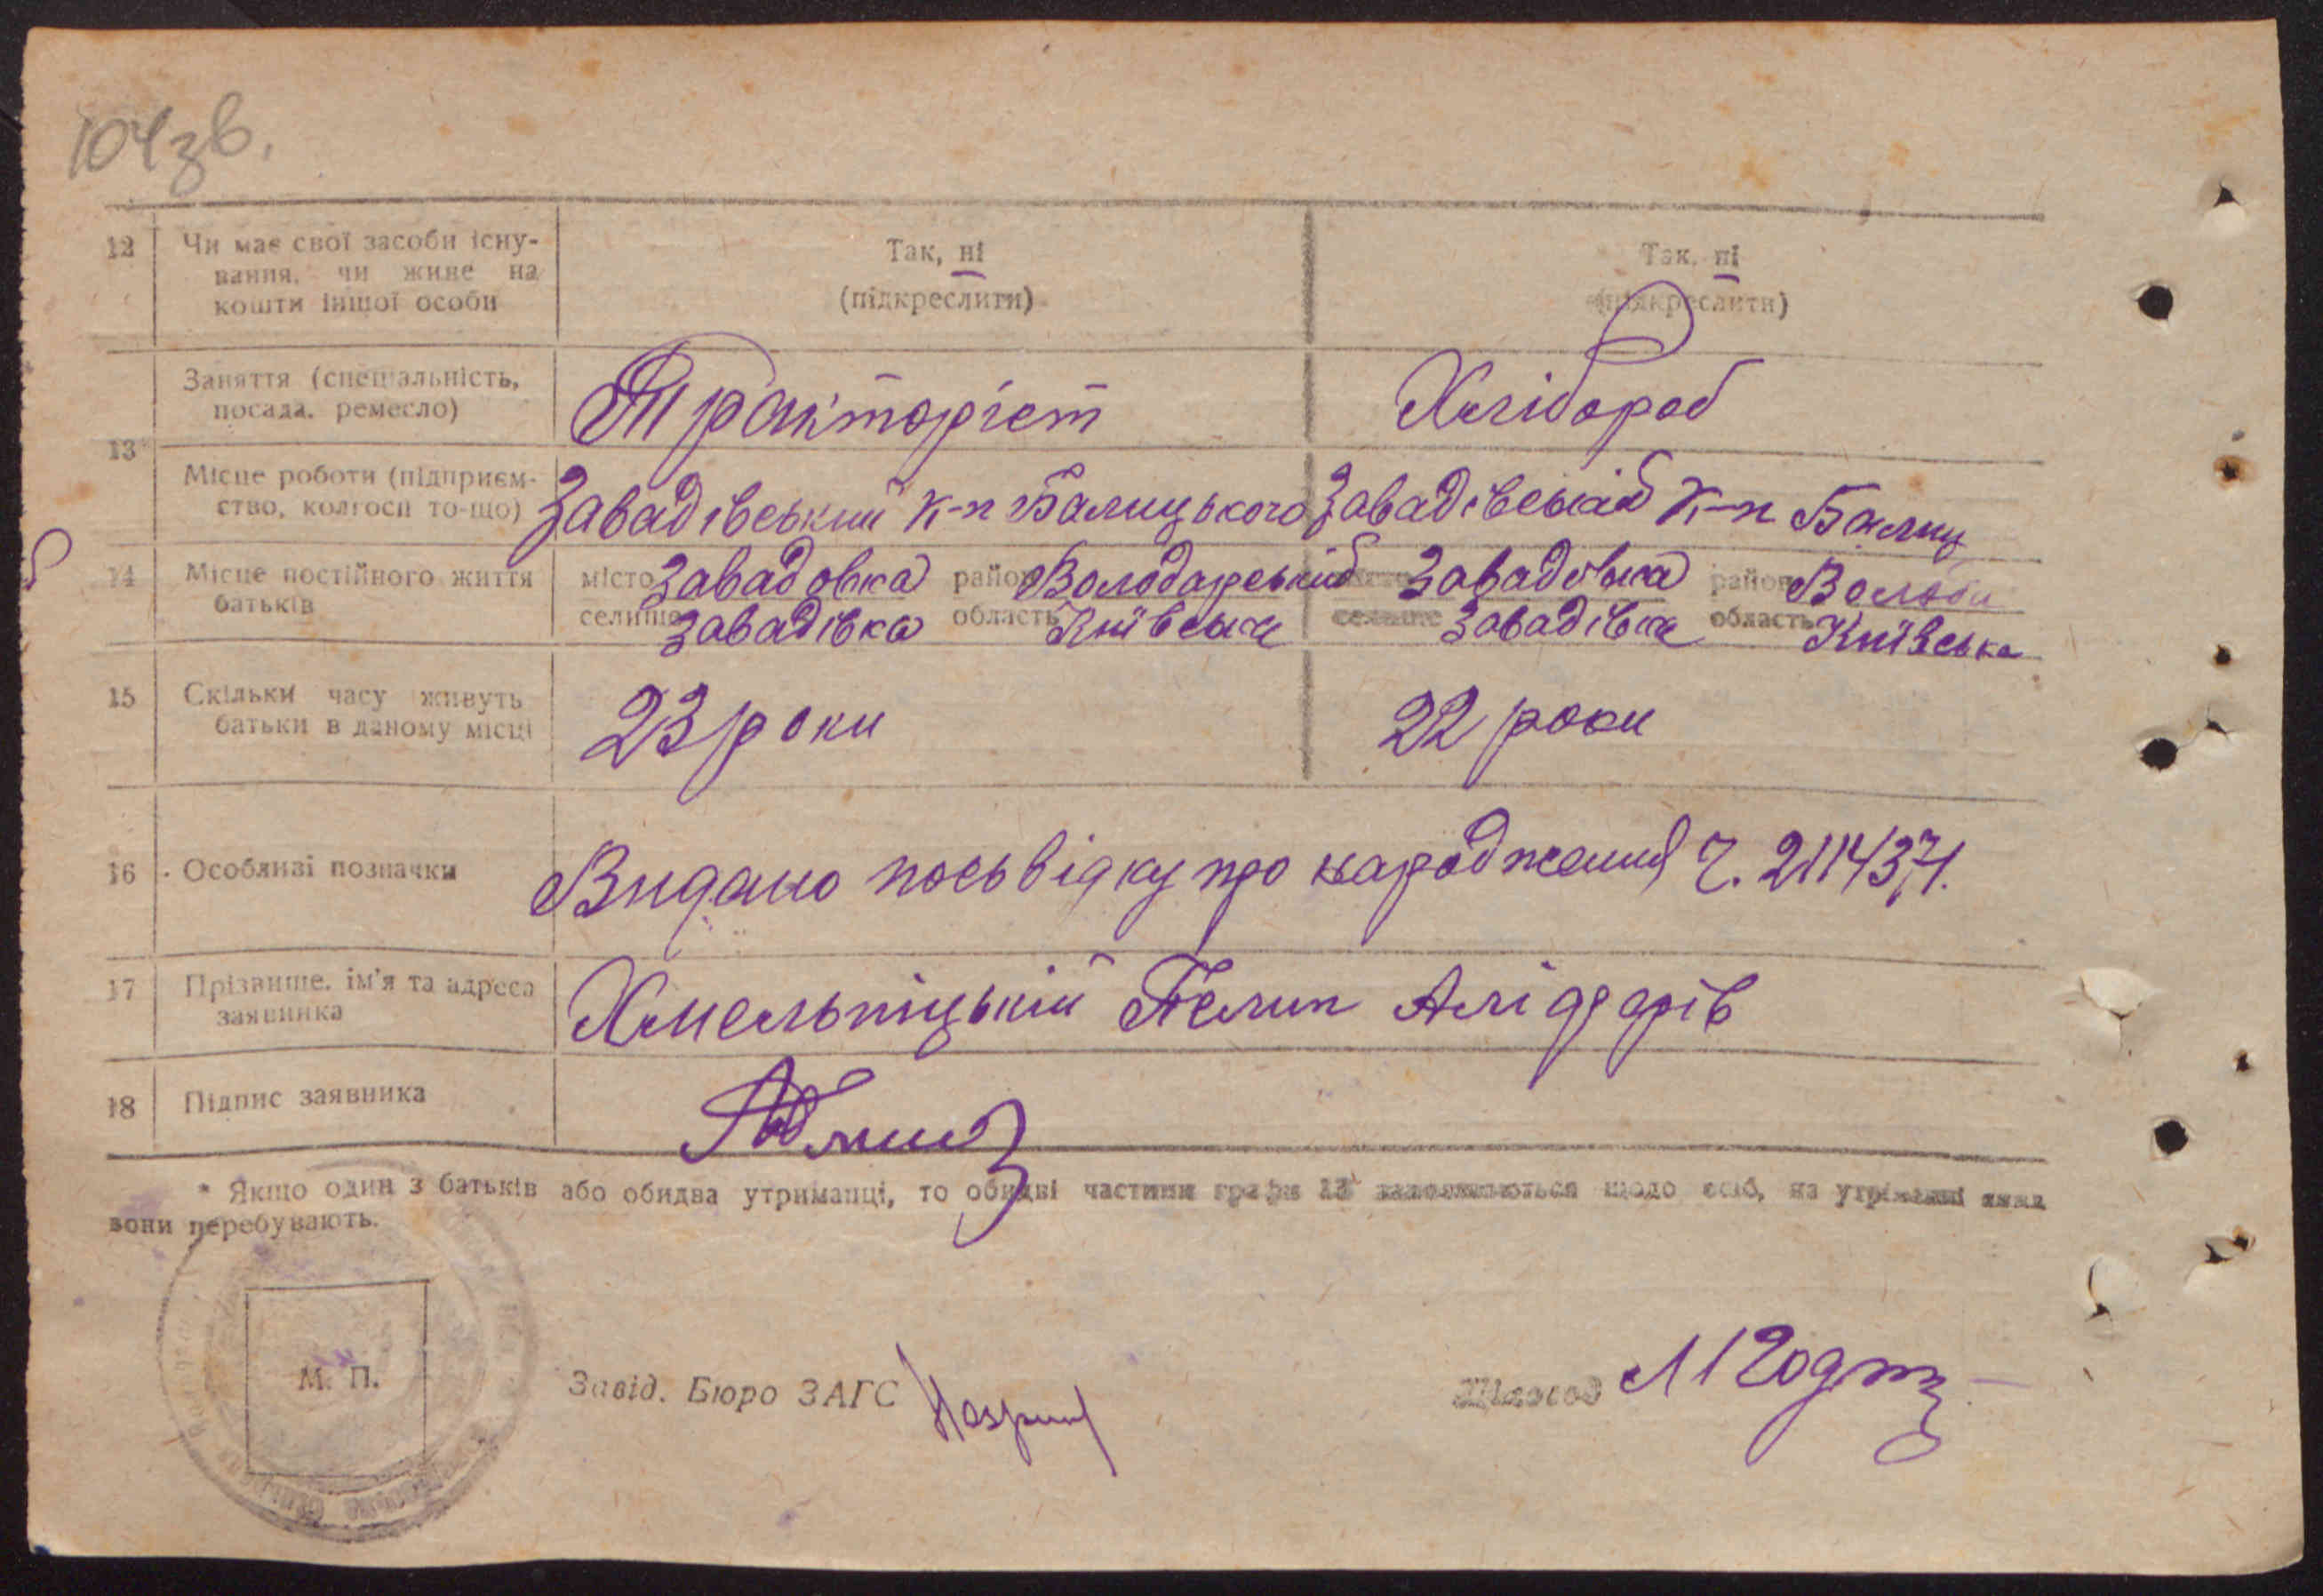 104зв.
12 Чи має свої засоби існу-
вання, чи живе на
кошти іншої особи
Так, ні
(підкреслити)
Так, ні
(підкреслити)
13* Заняття (спеціальність,
посада, ремесло)
Тракторіст
Хлібороб
Місце роботи (підприєм-
ство, колгосп то-що)
Завадівський к-п Балицького
Завадівський К-п Балиц
14 Місце постійного життя
батьків
місто Завадовка район Володарський
селище Завадівка область Київська
місто Завадовка район Волод
селище Завадівка область Київська
15 Скільки часу живуть
батьки в даному місці
23 роки
22 роки
16 Особливі позначки
Видано посьвідку про народження Ч. 2114371.
17 Прізвище, ім'я та адреса
заявника
Хмельніцький Пелип
18 Підпис заявника
* Якщо один з батьків або обидва утриманці, то обидві частини графи 13 заповнюються щодо осіб, на утриманні яких
вони перебувають.
М. П.
Завід. Бюро ЗАГС
Діловод